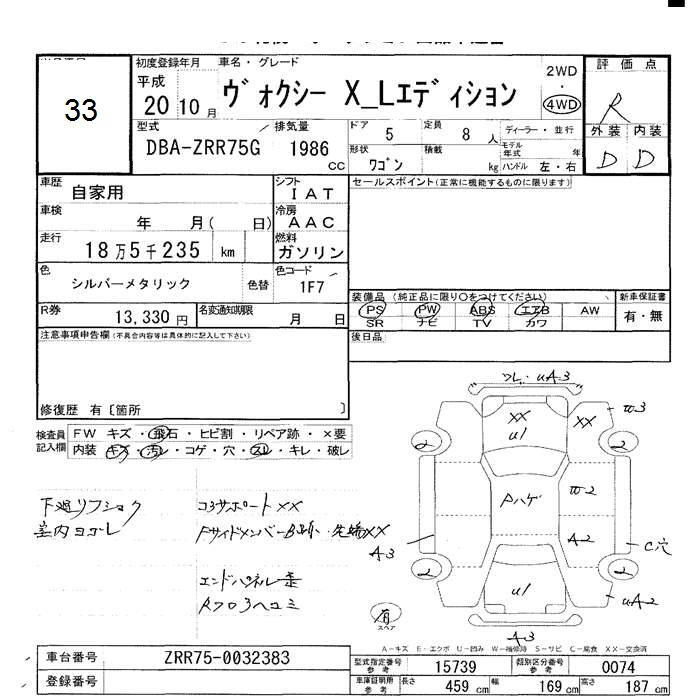 33
初度登録年月
平成
20 10 月
車名・グレード
ヴォクシー X_Lエディション
2WD
・
4WD
評価点
R
外装 内装
D D
型式
DBA-ZRR75G
排気量
1986
CC
ドア
5
定員
8 人
形状
ワゴン
積載
kg
ディーラー・並行
モデル年式 年
ハンドル 左・右
車歴
自家用
シフト
I A T
車検
年 月( 日)
冷房
A A C
走行
18万5千235 km
燃料
ガソリン
色
シルバーメタリック
色替
色コード
1F7
R券
13,330 円
名変通知期限
月 日
セールスポイント(正常に機能するものに限ります)
装備品 (純正品に限り○をつけてください)
新車保証書
PS PW ABS エアB AW
有・無
SR ナビ TV カワ
後日品
注意事項申告欄(不具合内容等は具体的に記入して下さい)
修復歴 有〔箇所 〕
検査員
記入欄
FW キズ・飛石・ヒビ割・リペア跡・×要
内装 キズ・汚レ・コゲ・穴・スレ・キレ・破レ
下廻リフショク
室内ヨゴレ
コアサポートXX
エンドパネル歪
uA3
XX
u1
XX
W3
2
2
Pハゲ
W2
A2
A3
C穴
2
2
u1
uA2
A3
有
スペア
A-キズ E-エクボ U-凹み W-補修跡 S-サビ C-腐食 XX-交換済
車台番号
ZRR75-0032383
登録番号
型式指定番号
参考
15739
類別区分番号
参考
0074
車庫証明用
参考
長さ
459 cm
幅
169 cm
高さ
187 cm